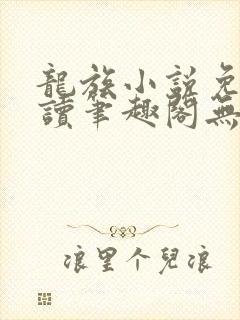 龍族小説免
讀筆趣閣無
浪里个兒浪